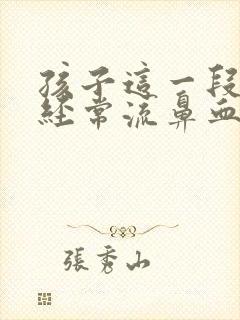 孩子這一段
經常流鼻血
張秀山